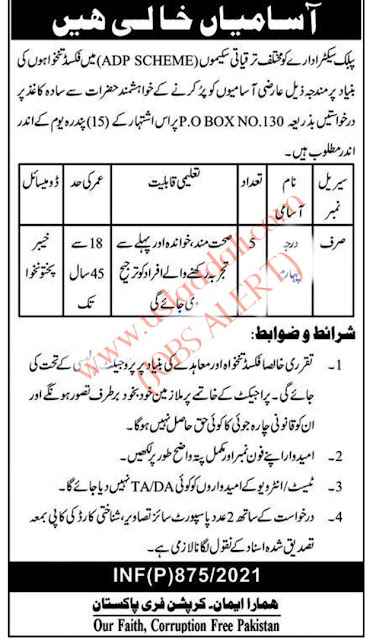 آسامیاں خالی ہیں
پبلک سیکٹر ادارے کو مختلف ترقیاتی سکیموں (ADP SCHEME) میں فکسڈ تنخواہوں کی
بنیاد پر مندرجہ ذیل عارضی آسامیوں کو پُر کرنے کے خواہشمند حضرات سے سادہ کاغذ پر
درخواستیں بذریعہ P.O BOX NO.130 پر اس اشتہار کے (15) پندرہ یوم کے اندر
اندر مطلوب ہیں۔
سیریل نمبر
نام آسامی
تعداد
تعلیمی قابلیت
عمر کی حد
ڈومیسائل
صرف
درجہ چہارم
5
صحت مند، خواندہ اور پہلے سے
تجربہ رکھنے والے افراد کو ترجیح
دی جائے گی
18 سے
45 سال
تک
خیبر
پختونخوا
شرائط و ضوابط:
1- تقرری خالصا فکسڈ تنخواہ اور معاہدے کی بنیاد پر پروجیکٹ پالیسی کے تحت کی
جائے گی۔ پراجیکٹ کے خاتمے پر ملازمین خود بخود برطرف تصور ہونگے اور
ان کو قانونی چارہ جوئی کا کوئی حق حاصل نہیں ہوگا۔
2- امیدوار اپنے فون نمبر اور مکمل پتہ واضح طور پر لکھیں۔
3- ٹیسٹ/انٹرویو کے امیدواروں کو کوئی TA/DA نہیں دیا جائے گا۔
4- درخواست کے ساتھ 2 عدد پاسپورٹ سائز تصاویر، شناختی کارڈ کی کاپی بمعہ
تصدیق شدہ اسناد کے نقول لگانا لازمی ہے۔
INF(P)875/2021
ہمارا ایمان۔ کرپشن فری پاکستان
Our Faith, Corruption Free Pakistan
(JOBS ALERT)